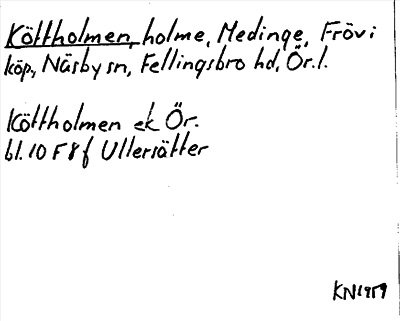 Köttholmen, holme, Medinge, Frövi
köp., Näsby sn, Fellingsbro hd, Ör. l.
Köttholmen ek Ör.
bl. 10 F 8 f Ullersätter
KN 1959